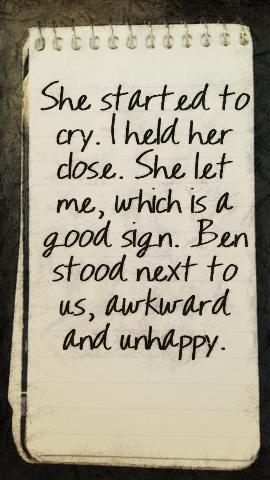 She started to
cry. I held her
close. She let
me, which is a
good sign. Ben
stood next to
us, awkward
and unhappy.